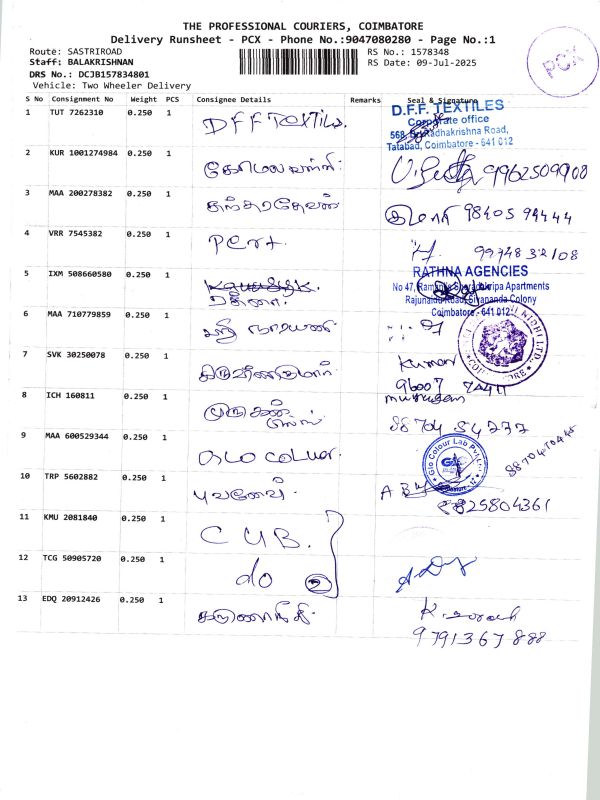 THE PROFESSIONAL COURIERS, COIMBATORE
Delivery Runsheet - PCX - Phone No.:9047080280 - Page No.:1
Route: SASTRIROAD
RS No.: 1578348
Staff: BALAKRISHNAN
RS Date: 09-Jul-2025
DRS No.: DCJB157834801
Vehicle: Two Wheeler Delivery
PCX
S No Consignment No Weight PCS Consignee Details Remarks Seal & Signature
1 TUT 7262310 0.250 1 DFF Textiles.
D.F.F. TEXTILES
Corporate office
568, Radhakrishna Road,
Tatabad, Coimbatore - 641 012
2 KUR 1001274984 0.250 1 கோமலவள்ளி 9962509900
3 MAA 200278382 1 சுந்தரதேவன் 98405 94444
4 VRR 7545382 0.250 1
5 IXM 508660580 0.250 1
RATHNA AGENCIES
Rajunaidu Road, Sivananda Colony
Coimbatore - 641 012
6 MAA 710779859 0.250 1 ஸ்ரீ நாராயண
7 SVK 30250078 0.250 1 Kumar
8 ICH 160811 0.250 1 முருகன் murugan
88704 54777
9 MAA 600529344 0.250 1 GLO Colour
Glo Colour Lab Pvt Ltd
10 TRP 5602882 0.250 1
11 KMU 2081840 0.250 1 CUB.
12 TCG 50905720 0.250 1 do
13 EDQ 20912426 0.250 1 கருணாநிதி
9791367888